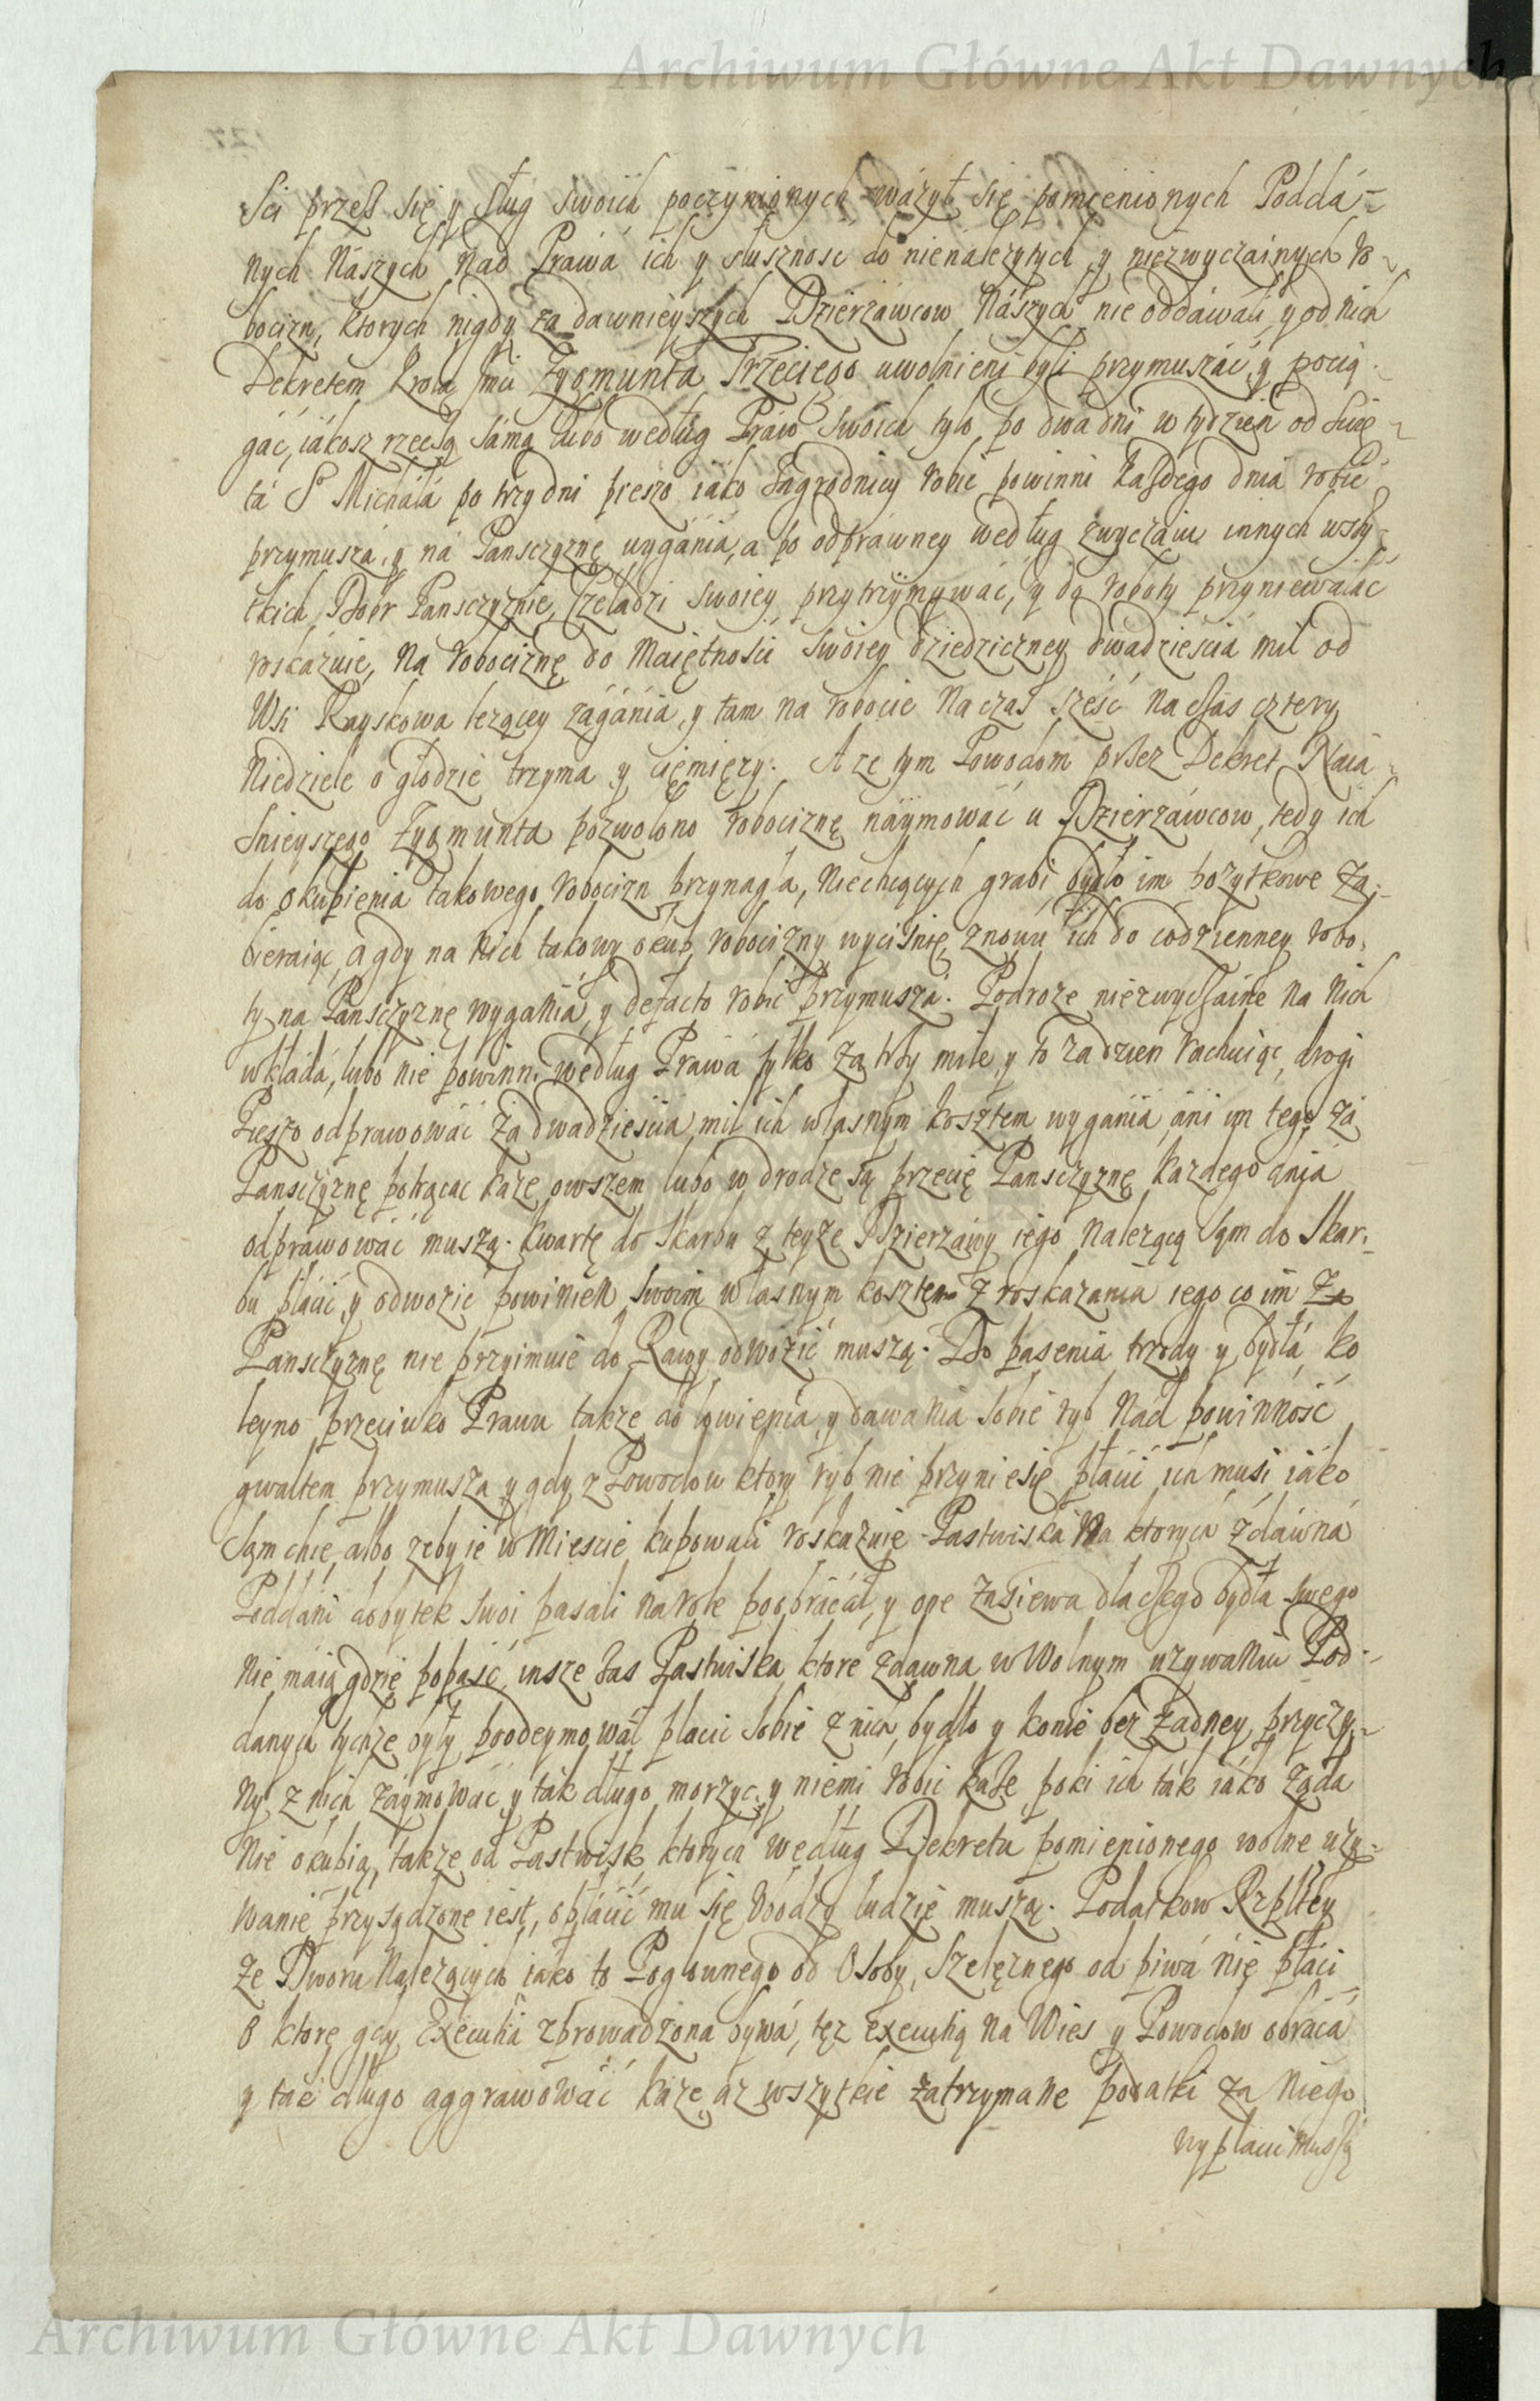 Archiwum Główne Akt Dawnych
sci przeß się y sług swoich poczynionych ważył się pomienionych Poddá-
nych Nászych nad Prawá ich y słusznosc do nienależytych y niezwyczainych ro-
bocizn, ktorych nigdy za dawnieyszych Dzierzáwcow Nászych nie oddáwali, y od nich
Dekretem Krola Jmci Zygmunta Trzeciego uwolnieni byli przymuszáć, y pocią-
gáć, iákosz rzeczą sámą lubo według Praw swoich tylo po dwa dni w tydzien od Swię-
tá S° Michałá po trzy dni pieszo iáko Zagrodnicy robic powinni każdego dniá robić
przymusza, y ná Pansczyznę wygánia, a po odprawney według zwyczaiu innych wszy-
tkich Dobr Pansczyznie, Czeladzi swoiey przytrzymywáć, y do roboty przyniewaláć
roskázuie, na robociznę do Maiętnosci swoiey dziedziczney dwadziescia mil od
Wsi Kayskowa leżącey zágánia, y tam na robocie na czas szesć na czas cztery
Niedziele o głodzie trzyma y ciemięży. A ze tym Powodom przez Dekret Naia-
snieyszego Zygmunta pozwolono robociznę náymowáć u Dzierzáwcow, tedy ich
do okupienia takowego robocizn przynagla, niechcących grabi, bydło im pożytkowe za-
bieraiąc, a gdy na nich takowy okup robocizny wycisnie, znowu ich do codzienney robo-
ty na Pansczyznę wygania, y defacto robic przymusza. Podroze niezwyczaine na nich
wkłádá, lubo nie powinni według Prawá tylko za trzy mile, y to za dzien rachuiąc, drogi
Pieszo odprawowáć za dwadziescia mil ich własnym kosztem wygánia áni im tego zá
Pansczyznę potrącac każe, owszem lubo w drodze są przecię Pansczyznę kazdego dnia
odprawowáć muszą. Kwartę do Skarbu z teyze Dzierzáwy iego nalezącą sam do Skar-
bu płácić, y odwozic powinien swoim własnym kosztem z roskazania iego co im za
Pansczyznę nie przyimuie do Rawy odwozić muszą. Do pasenia trzody y bydłá ko
leyno przeciwko Prawu takze do łowienia, y dawania sobie ryb nad powinność
gwałtem przymusza y gdy z Powodow ktory ryb nie przyniesie płacić ich musi iáko
sam chce, albo zeby ie w Miescie kupowali roskazuie. Pastwiská na ktorych zdáwná
Poddáni dobytek swoi pasali na role poobrácał, y one zasiewa dla czego bydła swego
nie máią gdzie popaść, insze zas Pastwiska ktore zdawna w Wolnym uzywaniu Pod-
danych tychze były poodeymował płacic sobie z nich, bydło y konie bez żadney przyczy-
ny z nich záymowáć y ták długo morzyc, y niemi robic każe poki ich ták iáko żąda
nie okupią, takze od Pastwisk ktorych według Dekretu pomienionego wolne uzy-
wanie przysądzone iest, opłácić mu się ubodzy ludzie muszą. Podatkow Rzpltey
ze Dworu nalezących iáko to Pogłownego od Osoby, Szelęznego od piwá nie płáci
o ktore gdy Executia zprowadzona bywá, tęz executią na Wies y Powodow obrácá
y tak długo aggrawowáć kaze, az wszytkie zatrzymane podatki za niego
wypłacić muszą
Archiwum Główne Akt Dawnych